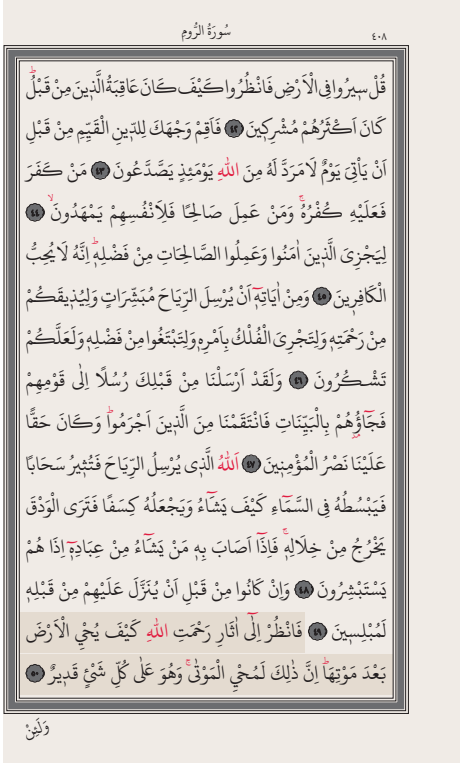 سُورَةُ الرُّومِ
٤٠٨
قُلْ سِيرُوا فِي الْاَرْضِ فَانْظُرُوا كَيْفَ كَانَ عَاقِبَةُ الَّذِينَ مِنْ قَبْلُۜ
كَانَ اَكْثَرُهُمْ مُشْرِكِينَ ٤٢ فَاَقِمْ وَجْهَكَ لِلدِّينِ الْقَيِّمِ مِنْ قَبْلِ
اَنْ يَأْتِيَ يَوْمٌ لَا مَرَدَّ لَهُ مِنَ اللّٰهِ يَوْمَئِذٍ يَصَّدَّعُونَ ٤٣ مَنْ كَفَرَ
فَعَلَيْهِ كُفْرُهُۚ وَمَنْ عَمِلَ صَالِحًا فَلِاَنْفُسِهِمْ يَمْهَدُونَۙ ٤٤
لِيَجْزِيَ الَّذِينَ اٰمَنُوا وَعَمِلُوا الصَّالِحَاتِ مِنْ فَضْلِهٖۜ اِنَّهُ لَا يُحِبُّ
الْكَافِرِينَ ٤٥ وَمِنْ اٰيَاتِهٖٓ اَنْ يُرْسِلَ الرِّيَاحَ مُبَشِّرَاتٍ وَلِيُذِيقَكُمْ
مِنْ رَحْمَتِهٖ وَلِتَجْرِيَ الْفُلْكُ بِاَمْرِهٖ وَلِتَبْتَغُوا مِنْ فَضْلِهٖ وَلَعَلَّكُمْ
تَشْكُرُونَ ٤٦ وَلَقَدْ اَرْسَلْنَا مِنْ قَبْلِكَ رُسُلًا اِلٰى قَوْمِهِمْ
فَجَٓاؤُ۫هُمْ بِالْبَيِّنَاتِ فَانْتَقَمْنَا مِنَ الَّذِينَ اَجْرَمُواۜ وَكَانَ حَقًّا
عَلَيْنَا نَصْرُ الْمُؤْمِنِينَ ٤٧ اَللّٰهُ الَّذِي يُرْسِلُ الرِّيَاحَ فَتُثِيرُ سَحَابًا
فَيَبْسُطُهُ فِي السَّمَٓاءِ كَيْفَ يَشَٓاءُ وَيَجْعَلُهُ كِسَفًا فَتَرَى الْوَدْقَ
يَخْرُجُ مِنْ خِلَالِهٖۚ فَاِذَٓا اَصَابَ بِهٖ مَنْ يَشَٓاءُ مِنْ عِبَادِهٖٓ اِذَا هُمْ
يَسْتَبْشِرُونَ ٤٨ وَاِنْ كَانُوا مِنْ قَبْلِ اَنْ يُنَزَّلَ عَلَيْهِمْ مِنْ قَبْلِهٖ
لَمُبْلِسِينَ ٤٩ فَانْظُرْ اِلٰٓى اٰثَارِ رَحْمَتِ اللّٰهِ كَيْفَ يُحْيِ الْاَرْضَ
بَعْدَ مَوْتِهَاۜ اِنَّ ذٰلِكَ لَمُحْيِ الْمَوْتٰىۚ وَهُوَ عَلٰى كُلِّ شَيْءٍ قَدِيرٌ ٥٠
وَلَئِنْ